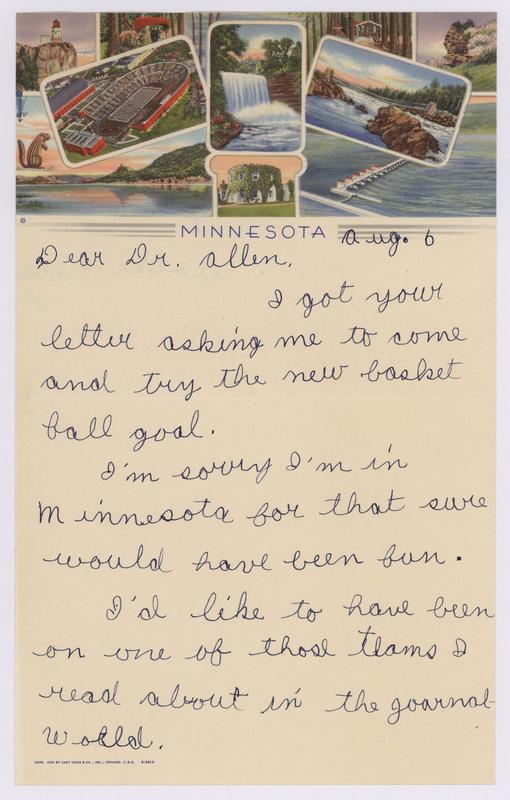 MINNESOTA
Aug. 6
Dear Dr. Allen,
I got your
letter asking me to come
and try the new basket
ball goal.
I'm sorry I'm in
Minnesota for that sure
would have been fun.
I'd like to have been
on one of those teams I
read about in the Journal-
World.